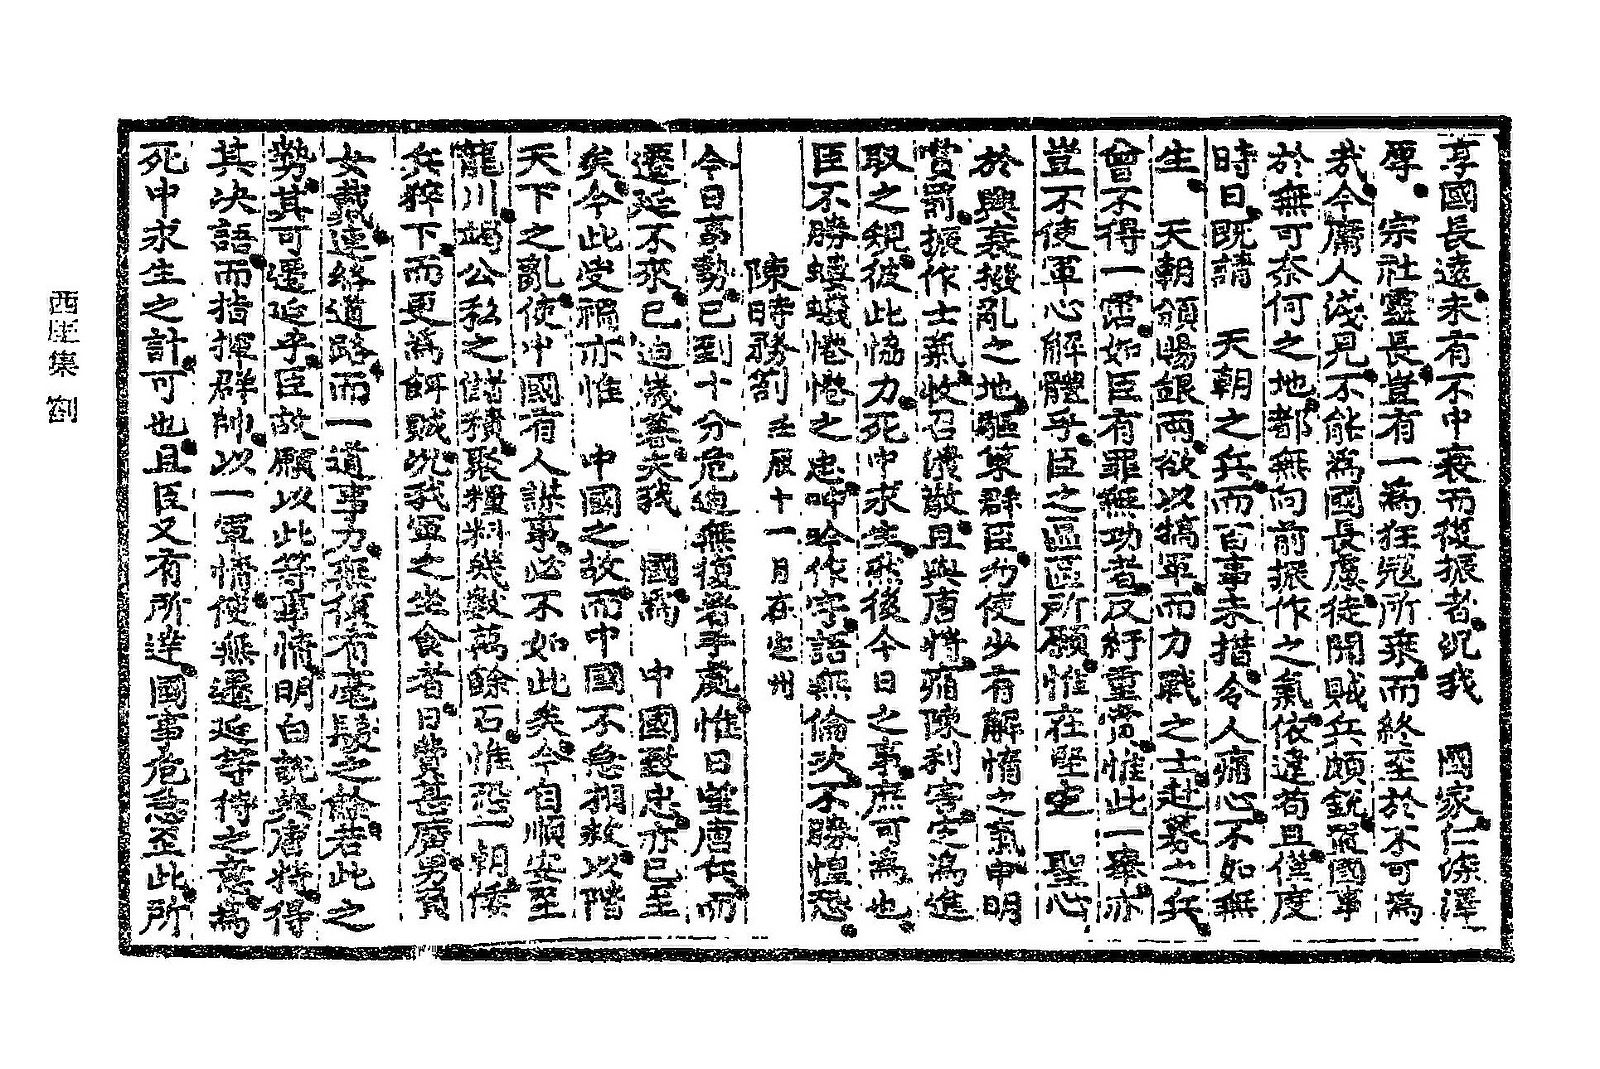 享國長遠未有不中衰而復振者況我 國家仁深澤
厚 宗社靈長豈有一爲狂寇所乘而終至於不可爲
哉今庸人淺見不能爲國長慮徒開賊兵頗銳眾國事
於無可奈何之地都無向前振作之氣依違苟且僅度
時日旣請 天朝之兵而百事未措令人痛心不如無
生 天朝頒賜銀兩欲以犒軍而力戰之士赴募之兵
曾不得一霑如臣有罪無功者反紆重賞惟此一擧亦
豈不使軍心解體乎臣之區區所願惟在堅定 聖心
於興衰撥亂之地驅策群臣力使少有解惰之氣申明
賞罰振作士氣收召潰散且與唐將痛陳利害定爲進
取之規彼此協力死中求生然後今日之事庶可爲也
臣不勝螻蟻惓惓之忠呻吟作字語無倫次不勝惶恐
陳時務劄 壬辰十一月在定州
今日事勢已到十分危迫無復著手處惟日望唐兵而
遷延不來已迫歲暮夫我 國爲 中國致忠亦已至
矣今此受禍亦惟 中國之故而中國不急相救以階
天下之亂使中國有人謀事必不如此矣今自順安至
龍川竭公私之儲積聚糧料幾數萬餘石惟恐一朝倭
兵猝下而更爲餌賊況我軍之坐食者日費甚廣男負
女戴連絡道路而一道事力無復有毫髮之餘若此之
勢其可遷延乎臣故願以此等事情明白說與唐將得
其決語而指揮群帥以一軍情使無遷延等待之意爲
死中求生之計可也且臣又有所達國事危急至此所
西厓集 劄